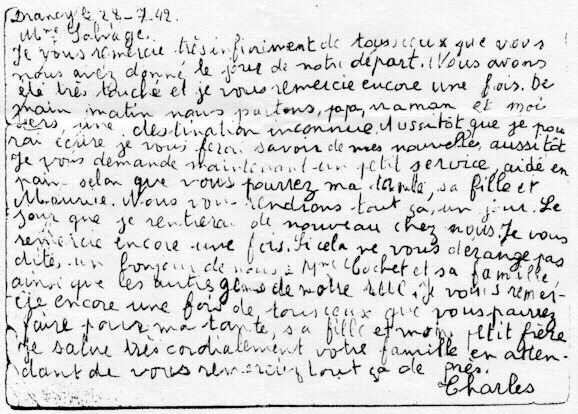 Drancy le 28-7.42.
Mme Salvage.
Je vous remercie très infiniment de tous ceux que vous
nous avez donné le jour de notre départ. Nous avons
été très touché et je vous remercie encore une fois. De
main matin nous partons, papa, maman et moi
vers, une destination inconnue. Aussitôt que je pour
rai écrire je vous ferai savoir de mes nouvelles, aussitôt
Je vous demande maintenant un petit service, aidé en
pain selon que vous pourrez ma tante, sa fille et
Maurice. Nous vous rendrons tout ça, un jour. Le
jour que je rentrerai de nouveau chez nous. Je vous
remercie encore une fois. Si cela ne vous dérange pas
dites un bonjour de nous à Mme Cochet et sa famille,
ainsi que les autres gens de notre rue. Je vous remer-
cie encore une fois de tous ceux que vous pourrez
faire pour ma tante, sa fille et mon petit frère
Je salue très cordialement votre famille en atten-
dant de vous remerciez tout ça de près.
Charles